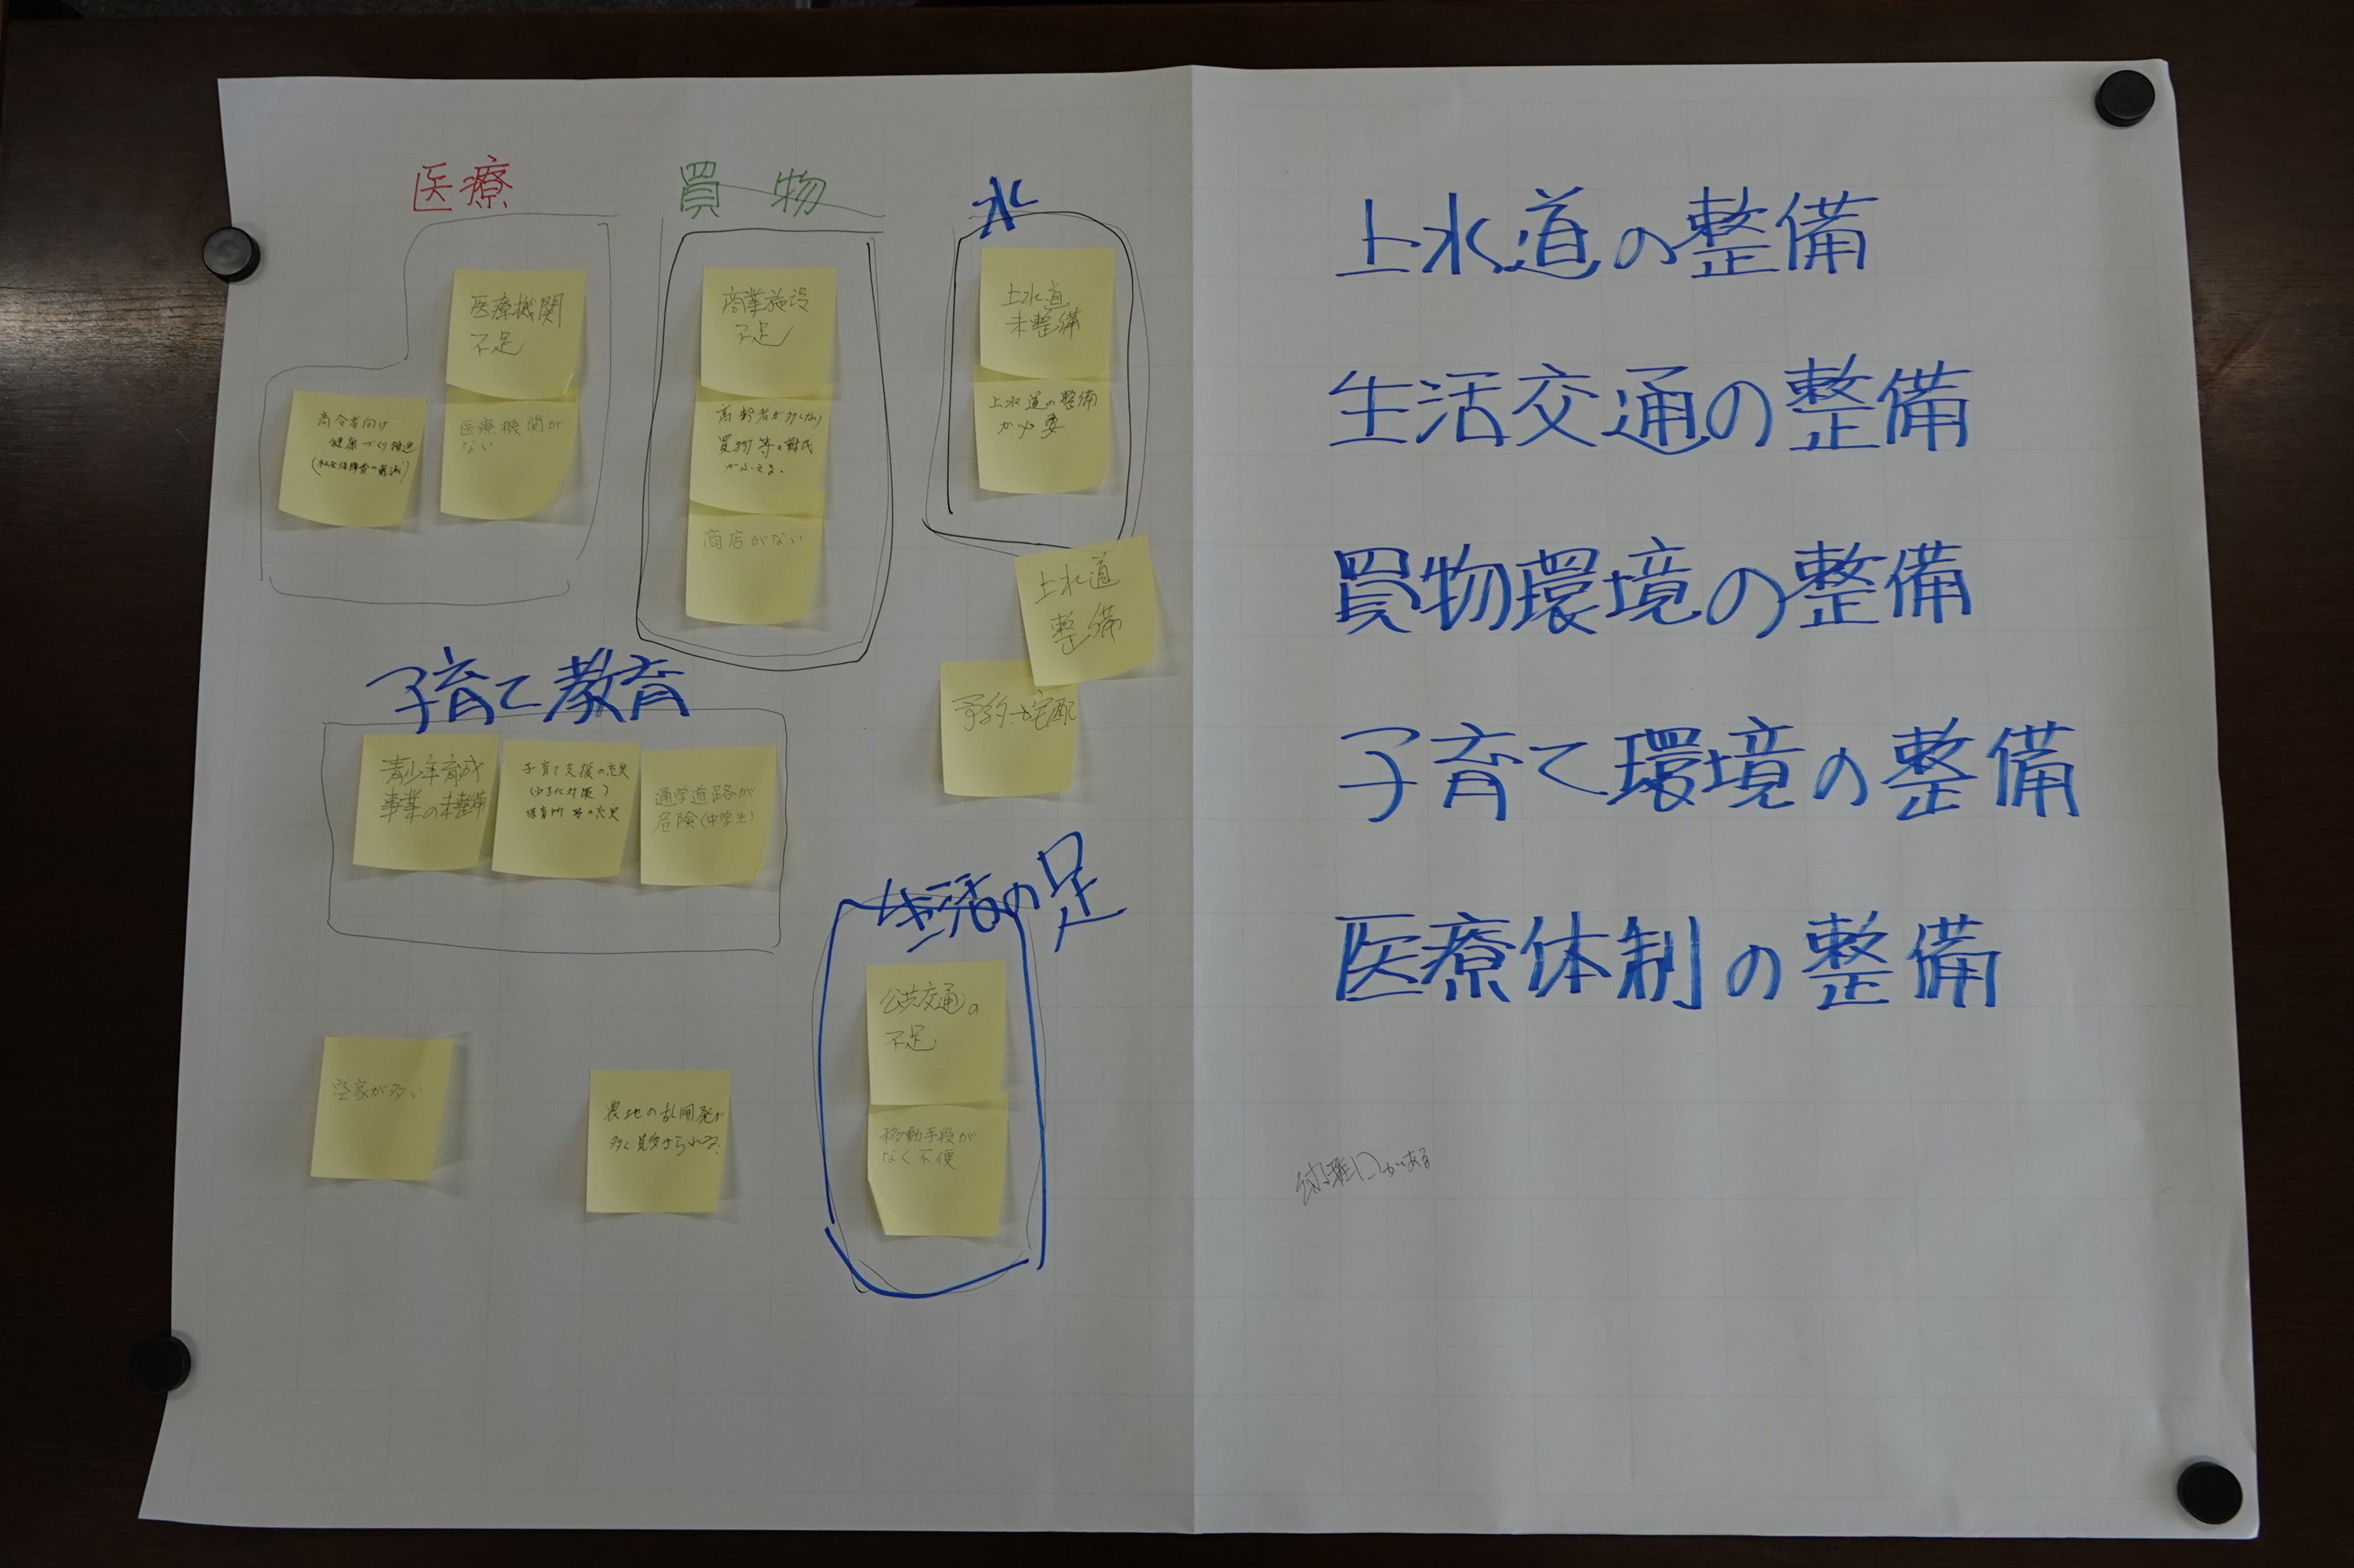 医療
医療機関
不足
医療機関が
ない
高令者向け
健康づくり推進
買物
商業施設
不足
高齢者が多くなり
買物等の難民
がふえる。
商店がない
水
上水道
未整備
上水道の整備
が必要
上水道
整備
宅配
子育て教育
青少年育成
事業の未整備
子育て支援の充実
(少子化対策)
保育所等の充実
通学道路が
危険(中学生)
生活の足
公共交通の
不足
移動手段が
なく不便
空家が多い
農地の乱開発が
多く見受けられる。
上水道の整備
生活交通の整備
買物環境の整備
子育て環境の整備
医療体制の整備